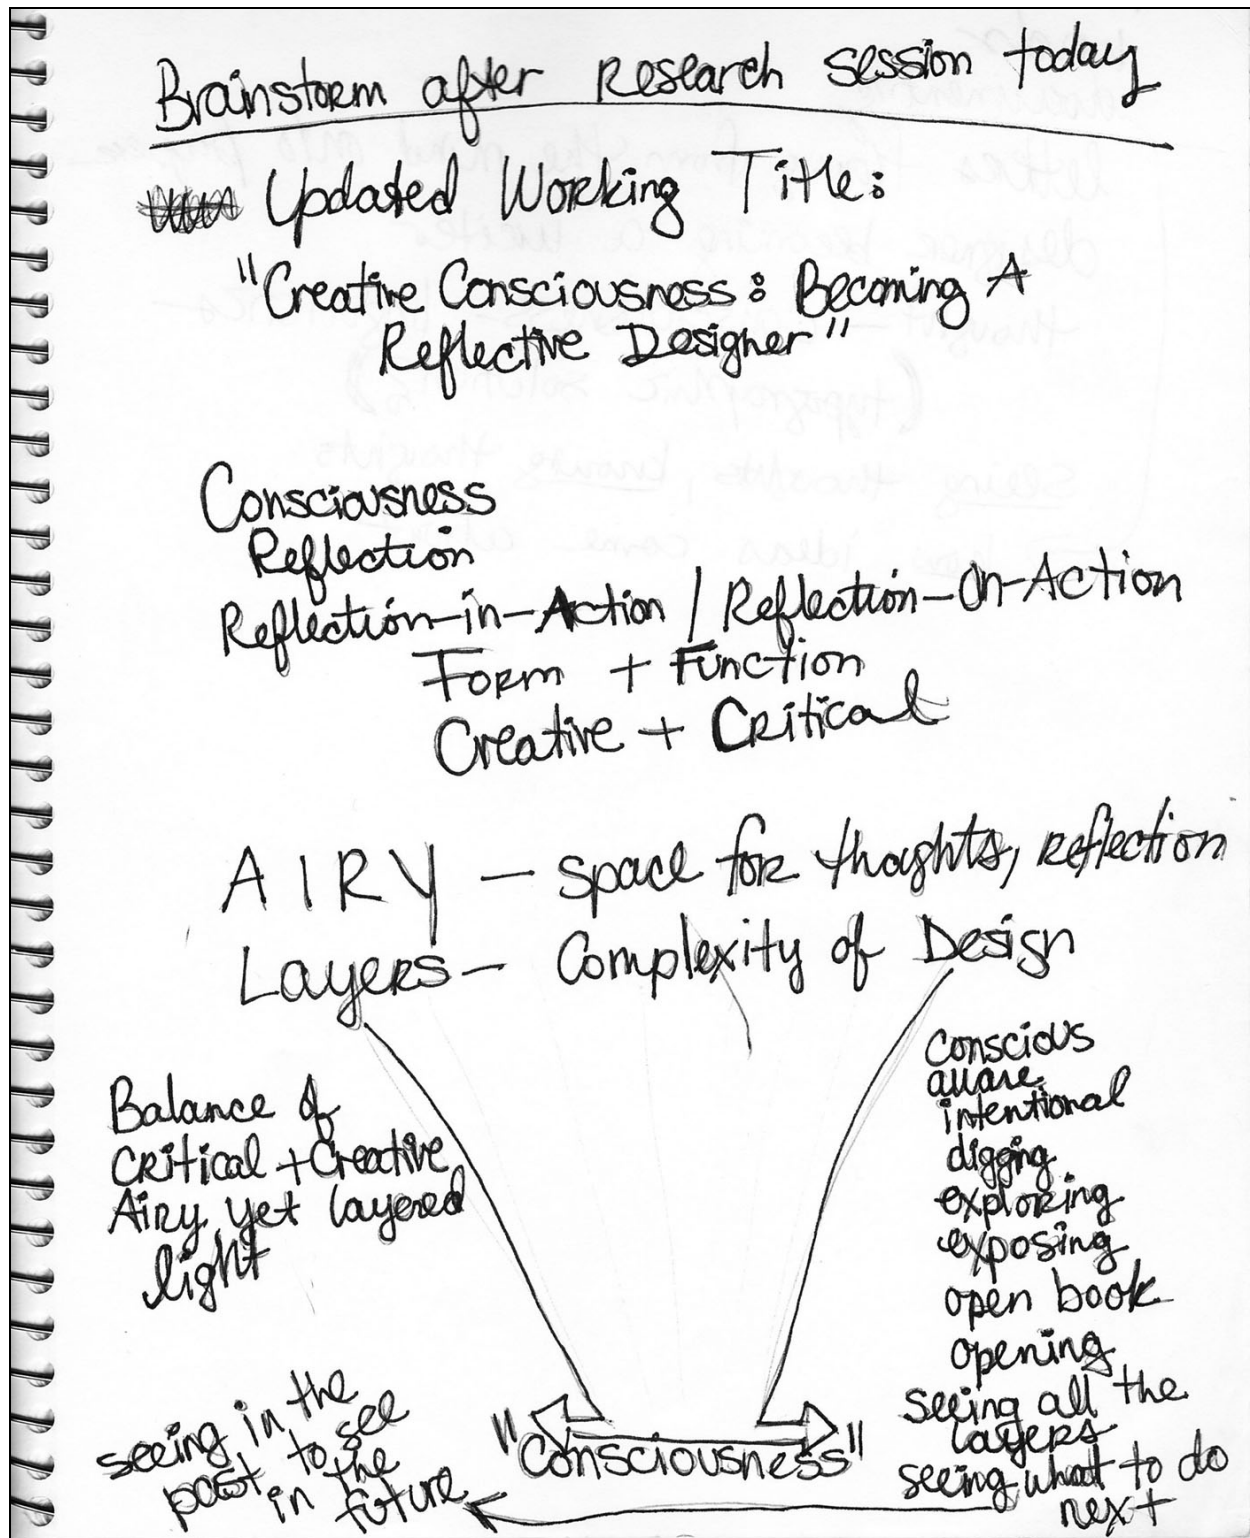 Brainstorm after Research session today
Updated Working Title:
"Creative Consciousness: Becoming A
Reflective Designer"
Consciousness
Reflection
Reflection-in-Action / Reflection-On-Action
Form + Function
Creative + Critical
AIRY — space for thoghts, reflection
Layers — Complexity of Design
Balance of
Critical + Creative
Airy yet layered
light
conscious
aware
intentional
digging
exploring
exposing
open book
opening
seeing all the
layers
seeing what to do
next
"Consciousness"
seeing in the
past to see
in the
future